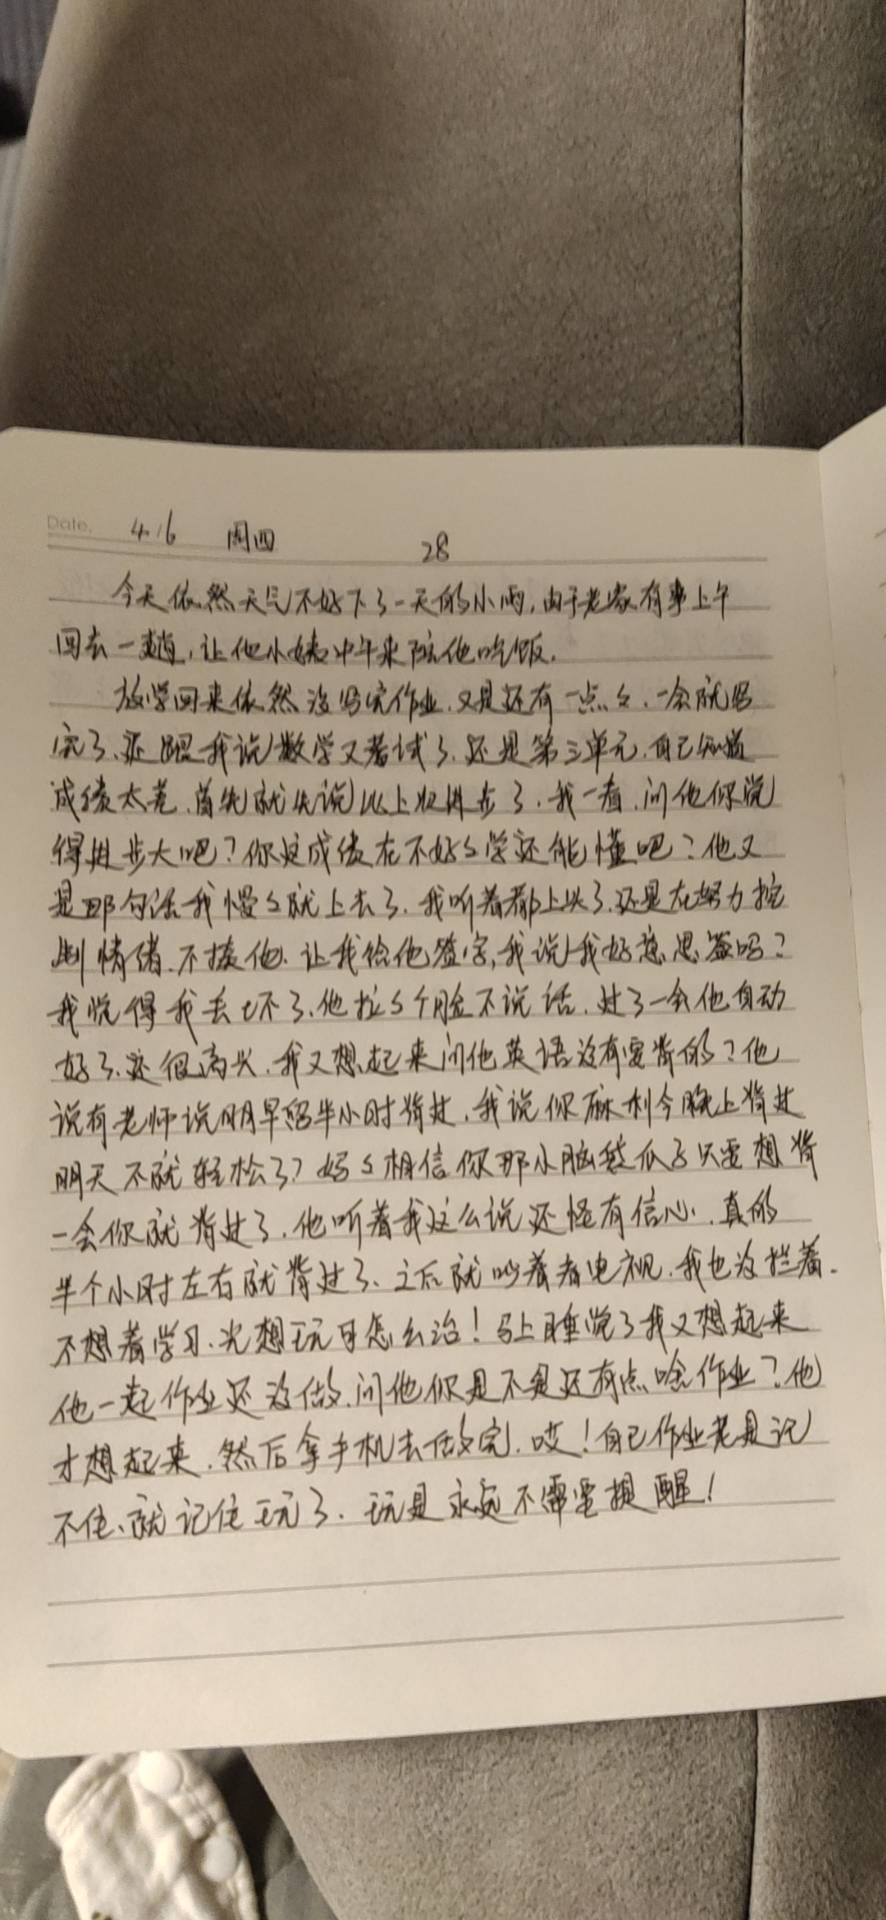 Date. 4.16 周四 28
今天依然天气不好下了一天的小雨,由于老家有事上午
回去一趟,让他小姨中午来陪他吃饭.
放学回来依然没写完作业.又是还有一点々.一会就写
完了.还跟我说数学又考试了.还是第三单元.自己知道
成绩太差.首先就先说比上次进步了.我一看.问他你觉
得进步大吧?你这成绩在不好々学还能懂吧?他又
是那句话我慢々就上去了.我听着都上头了.还是在努力控
制情绪.不揍他.让我给他签字,我说我好意思签吗?
我觉得我丢不了.他拉々个脸不说话.过了一会他自动
好了.还很高兴.我又想起来问他英语没有要背的?他
说有老师说明早给半小时背过.我说你麻利今晚上背过
明天不就轻松了?妈々相信你那小脑袋瓜子只要想背
一会你就背过了.他听着我这么说还怪有信心.真的
半个小时左右就背过了.之后就吵着看电视.我也没拦着.
不想着学习.光想玩可怎么治!马上睡觉了我又想起来
他一起作业还没做.问他你是不是还有点啥作业?他
才想起来.然后拿手机去做完.哎!自己作业老是记
不住、就记住玩了.玩是永远不需要提醒!